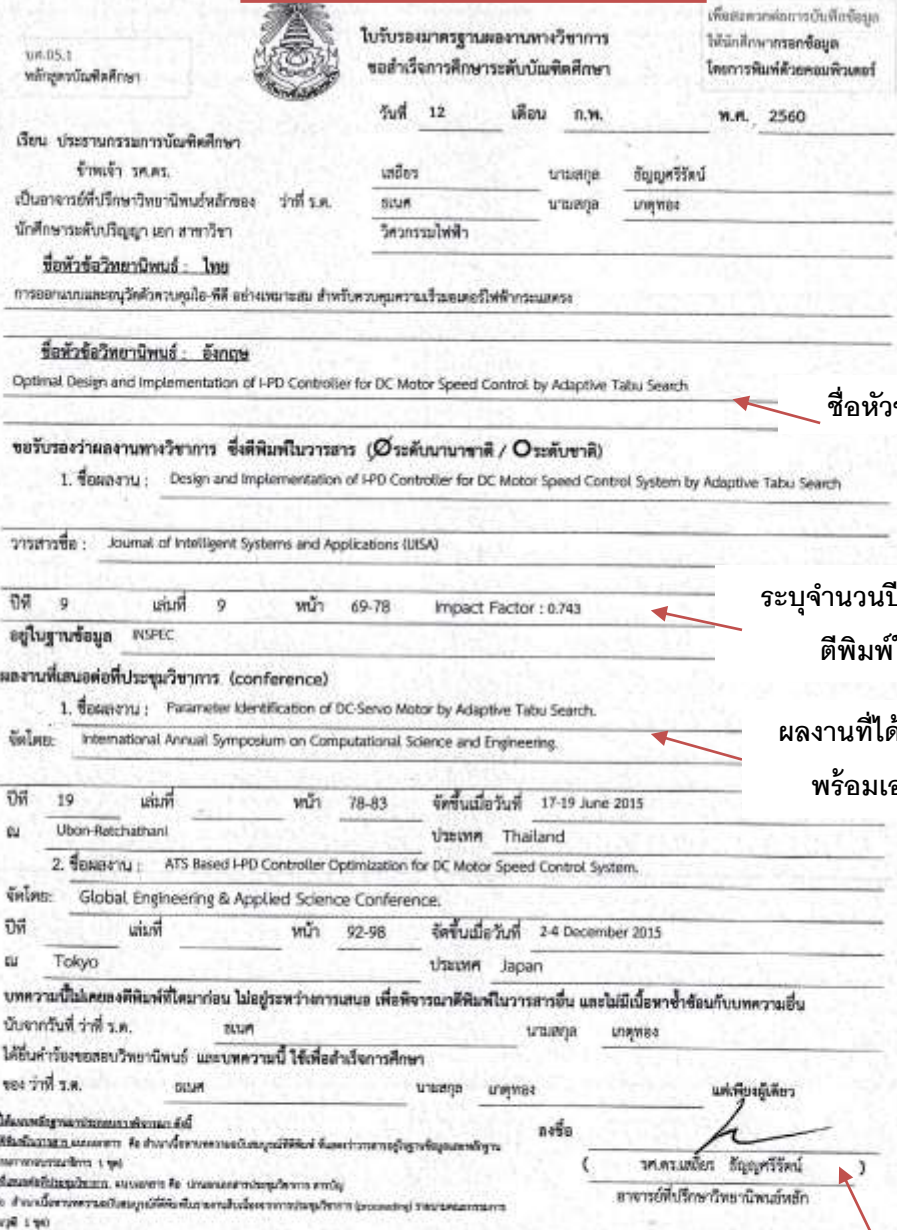 บศ.05.1
หลักสูตรบัณฑิตศึกษา
ใบรับรองมาตรฐานผลงานทางวิชาการ
ขอสำเร็จการศึกษาระดับบัณฑิตศึกษา
เพื่อสะดวกต่อการบันทึกข้อมูล
ให้นักศึกษากรอกข้อมูล
โดยการพิมพ์ด้วยคอมพิวเตอร์
วันที่ 12 เดือน ก.พ. พ.ศ. 2560
เรียน ประธานกรรมการบัณฑิตศึกษา
ข้าพเจ้า รศ.ดร. เสถียร นามสกุล ธัญญศรีรัตน์
เป็นอาจารย์ที่ปรึกษาวิทยานิพนธ์หลักของ ว่าที่ ร.ต. ธเนศ นามสกุล เกตุทอง
นักศึกษาระดับปริญญา เอก สาขาวิชา วิศวกรรมไฟฟ้า
ชื่อหัวข้อวิทยานิพนธ์ : ไทย
การออกแบบและอนุวัตตัวควบคุมไอ-พีดี อย่างเหมาะสม สำหรับควบคุมความเร็วมอเตอร์ไฟฟ้ากระแสตรง
ชื่อหัวข้อวิทยานิพนธ์ : อังกฤษ
Optimal Design and Implementation of I-PD Controller for DC Motor Speed Control by Adaptive Tabu Search
ชื่อหัวข
ขอรับรองว่าผลงานทางวิชาการ ซึ่งตีพิมพ์ในวารสาร (Øระดับนานาชาติ / Oระดับชาติ)
1. ชื่อผลงาน : Design and Implementation of I-PD Controller for DC Motor Speed Control System by Adaptive Tabu Search
วารสารชื่อ : Journal of Intelligent Systems and Applications (IJISA)
ปีที่ 9 เล่มที่ 9 หน้า 69-78 Impact Factor : 0.743
ระบุจำนวนปี
อยู่ในฐานข้อมูล INSPEC
ตีพิมพ์ใ
ผลงานที่เสนอต่อที่ประชุมวิชาการ (conference)
1. ชื่อผลงาน : Parameter Identification of DC-Servo Motor by Adaptive Tabu Search.
ผลงานที่ได้
จัดโดย: International Annual Symposium on Computational Science and Engineering.
พร้อมเอ
ปีที่ 19 เล่มที่ หน้า 78-83 จัดขึ้นเมื่อวันที่ 17-19 June 2015
ณ Ubon-Ratchathani ประเทศ Thailand
2. ชื่อผลงาน : ATS Based I-PD Controller Optimization for DC Motor Speed Control System.
จัดโดย: Global Engineering & Applied Science Conference.
ปีที่ เล่มที่ หน้า 92-98 จัดขึ้นเมื่อวันที่ 2-4 December 2015
ณ Tokyo ประเทศ Japan
บทความนี้ไม่เคยลงตีพิมพ์ที่ใดมาก่อน ไม่อยู่ระหว่างการเสนอ เพื่อพิจารณาตีพิมพ์ในวารสารอื่น และไม่มีเนื้อหาซ้ำซ้อนกับบทความอื่น
นับจากวันที่ ว่าที่ ร.ต. ธเนศ นามสกุล เกตุทอง
ได้ยื่นคำร้องขอสอบวิทยานิพนธ์ และบทความนี้ ใช้เพื่อสำเร็จการศึกษา
ของ ว่าที่ ร.ต. ธเนศ นามสกุล เกตุทอง แต่เพียงผู้เดียว
ลงชื่อ
( รศ.ดร.เสถียร ธัญญศรีรัตน์ )
อาจารย์ที่ปรึกษาวิทยานิพนธ์หลัก